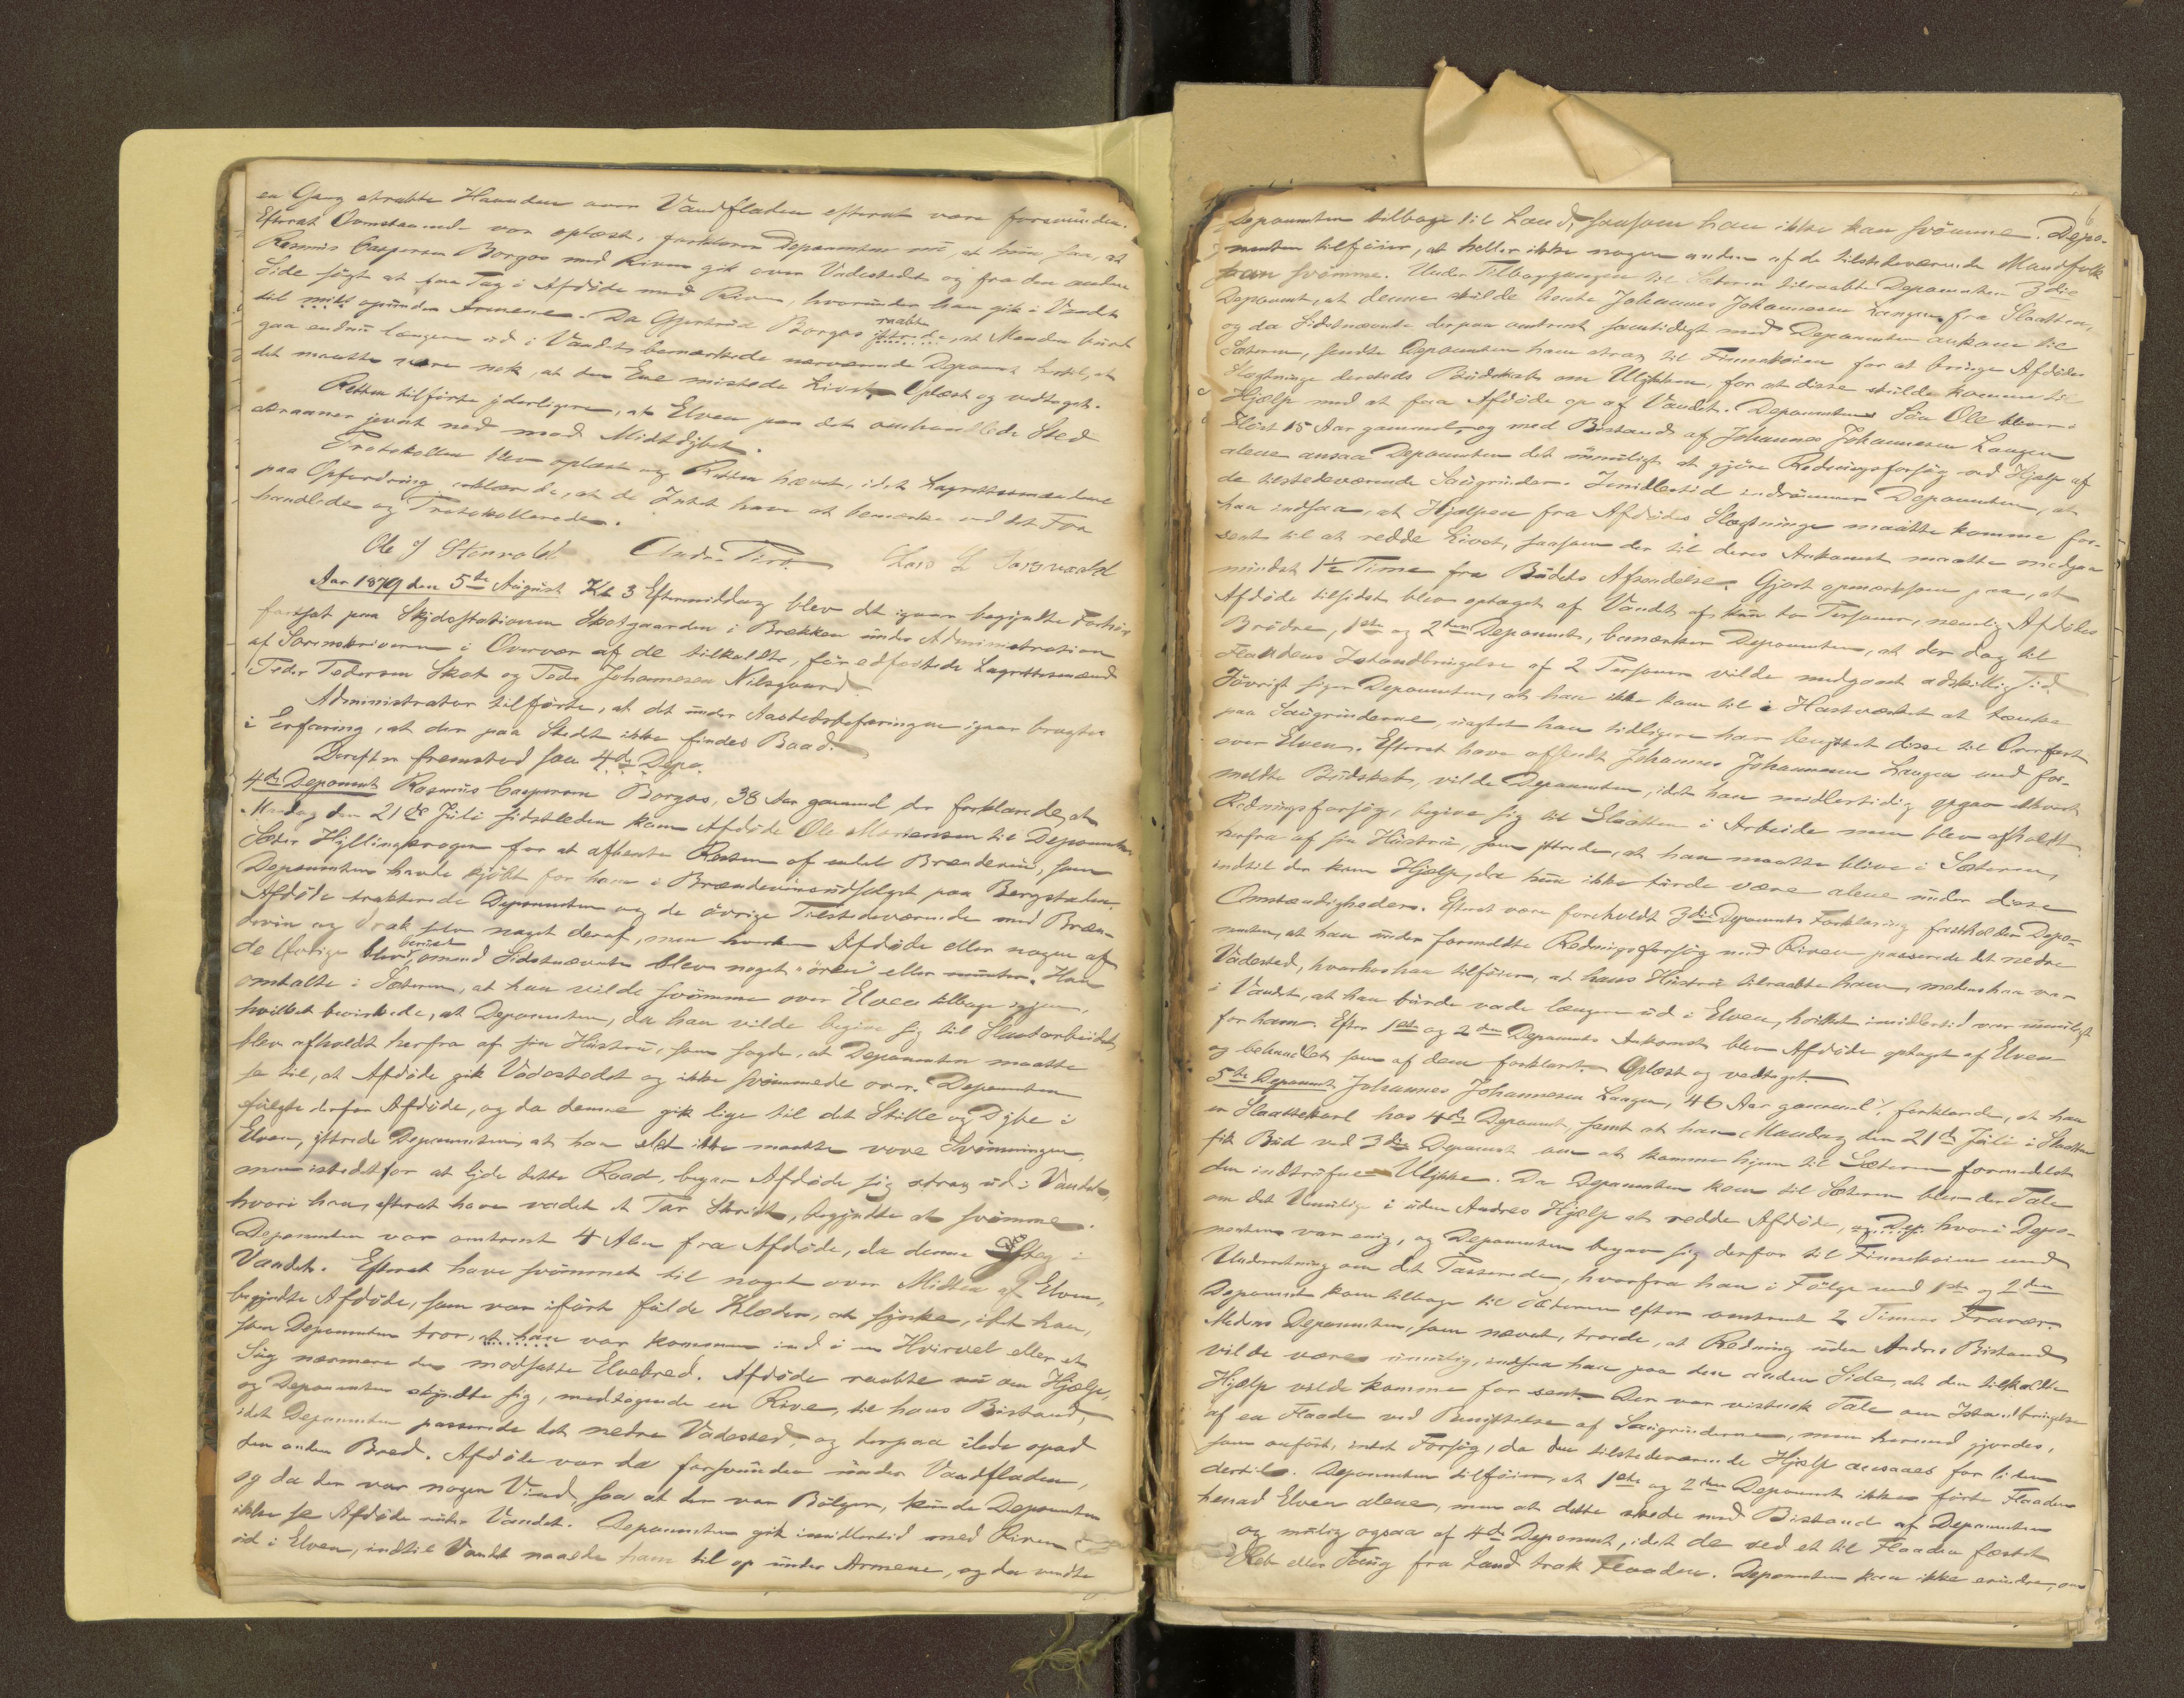 en Gang strakte Haanden over Vandfladen efterat være forsvunden.
Efterat Ovenstaaende var oplæst, forklarer Deponenten nu, at hun saa, at
Rasmus Caspersen Borgos med Riven gik over Vadestedet og fra den anden
Side søgte at faa Tag i Afdøde med Riven, hvorunder han gik i Vandet
til midt opunder Armene. Da Gjertrud Borgos raabte, at Manden burde
gaa endnu længere ud i Vandet, bemærkede nærværende Deponent hertil, at
det maatte være nok, at den Ene mistede Livet. Oplæst og vedtaget.
Retten tilførte yderligere, at Elven paa det omhandlede Sted
skraaner jevnt ned mod Midtdybet.
Protokollen blev oplæst og Retten hævet, idet Lagrettesmændene
paa Opfordring erklærede, at de Intet have at bemærke ved det For-
handlede og Protokollerede.
Ole J Stenvold Lars L
Aar 1879 den 5te August Kl. 3 Eftermiddag blev det igaar begyndte Forhør
fortsat paa Skydsstationen Skotgaarden i Brækken under Administration
af Sorenskriveren i Overvær af de tilkaldte, før edfæstede Lagrettesmænd
Peder Pedersen Skot og Peder Johannesen Nilsgaard.
Administrator tilførte, at det under Aastedsbefaringen igaar bragtes
i Erfaring, at der paa Stedet ikke findes Baad.
Derefter fremstod som 4de Depo.
4de Deponent Rasmus Caspersen Borgos, 38 Aar gammel, der forklarede, at
Mandag den 21de Juli sidstleden kom Afdøde Ole Mortensen til Deponentens
Sæter Hyllingkrogen for at afhente Resten af endel Brændeviin, som
Deponenten havde kjøbt for ham i Brændevinsudsalget paa Bergstaden.
Afdøde trakterede Deponenten og de øvrige Tilstedeværende med Bræn-
devin og drak selv noget deraf, men hverken Afdøde eller nogen af
de Øvrige blev beruset, omend Sidstnævnte blev noget "ören" eller munter. Han
omtalte i Sæteren, at han vilde svømme over Elven tilbage igjen,
hvilket bevirkede, at Deponenten, da han vilde begive sig til Slaatarbeidet,
blev afholdt herfra af sin Hustru, som sagde, at Deponenten maatte
se til, at Afdøde gik Vadestedet og ikke svømmede over. Deponenten
fulgte derfor Afdøde, og da denne gik lige til det Stille og Dybe i
Elven, yttrede Deponenten, at han slet ikke maatte vove Svømningen,
men istedetfor at lyde dette Raad, begav Afdøde sig strax ud i Vandet,
hvori han, efterat have vadet et Par Skridt, begyndte at svømme.
Deponenten var omtrent 4 Alen fra Afdøde, da denne steg i
Vandet. Efterat have svømmet til noget over Midten af Elven,
begyndte Afdøde, som var iført fulde Klæder, at synke, idet han,
som Deponenten tror, at han var kommen ind i en Hvirvel eller et
Sug nærmere den modsatte Elvebred. Afdøde raabte nu om Hjælp,
og Deponenten skyndte sig, medtagende en Rive, til hans Bistand,
idet Deponenten passerede det nedre Vadested, og derpaa ilede opad
den anden Bred. Afdøde var da forsvunden under Vandfladen,
og da der var nogen Vind, saa at der var Bølger, kunde Deponenten
ikke se Afdøde under Vandet. Deponenten gik imidlertid med Riven
ud i Elven, indtil Vandet naaede ham til op under Armene, og da vendte
6
Deponenten tilbage til Land, saasom han ikke kan svømme. Depo-
nenten tilføier, at heller ikke nogen anden af de tilstedeværende Mandfolk
kan svømme. Under Tilbagegangen til Sæteren tilraabte Deponenten 3die
Deponent, at denne skulde hente Johannes Johannesen Langen fra Slaatten,
og da Sidstnævnte derpaa omtrent samtidigt med Deponenten ankom til
Sæteren, sendte Deponenten ham strax til Finnekoien for at bringe Afdødes
Slægtninge dersteds Budskab om Ulykken, for at disse skulde komme til
Hjælp med at faa Afdøde op af Vandet. Deponentens Søn Ole
15 Aar gammel, og med Bistand af Johannes Johannesen Langen
alene ansaa Deponenten det umuligt at gjøre Redningsforsøg ved Hjælp af
de tilstedeværende Saugrinder. Imidlertid indrømmer Deponenten, at
han indsaa, at Hjælpen fra Afdødes Slægtninge maatte komme for-
sent til at redde Livet, saasom der til deres Ankomst maatte medgaa
mindst 1½ Time fra Budets Afsendelse. Gjort opmærksom paa, at
Afdøde tilsidst blev optaget af Vandet af kun to Personer, nemlig Afdødes
Brødre, 1ste og 2den Deponent, bemærker Deponenten, at der dog til
Flaadens Istandbringelse af 2 Personer vilde medgaaet adskillig Tid.
Iøvrigt siger Deponenten, at han ikke kom til i Hastværket at tænke
paa Saugrinderne, uagtet han tidligere har benyttet disse til Overfart
over Elven. Efterat have afsendt Johannes Johannesen Langen med for-
meldte Budskab, vilde Deponenten, idet han midlertidig opgav ethvert
Redningsforsøg, begive sig til Slaatten i Arbeide men blev afholdt
herfra af sin Hustru, som yttrede, at han maatte blive i Sæteren,
indtil der kom Hjælp, da hun ikke turde være alene under disse
Omstændigheder. Efterat være foreholdt 3die Deponents Forklaring fastholder Depo-
nenten, at han under formeldte Redningsforsøg med Riven passerede det nedre
Vadested, hvorhos han tilføier, at hans Hustru tilraabte ham, medens han var
i Vandet, at han burde vade længere ud i Elven, hvilket imidlertid var umuligt
for ham. Efter 1ste og 2den Deponents Ankomst blev Afdøde optaget af Elven
og behandlet som af dem forklaret. Oplæst og vedtaget.
5te Deponent Johannes Johannesen Langen, 46 Aar gammel, forklarede, at han
er Slaattekarl hos 4de Deponent, samt at han Mandag den 21de Juli i Slaatten
fik Bud ved 3die Deponent om at komme hjem til Sæteren formedelst
den indtrufne Ulykke. Da Deponenten kom til Sæteren blev der Tale
om det Umulige i uden Andres Hjælp at redde Afdøde, og Dep. hvori Depo-
nenten var enig, og Deponenten begav sig derfor til Finnekoien med
Underretning om det Passerede, hvorfra han i Følge med 1ste og 2den
Deponent kom tilbage til Sæteren efter omtrent 2 Timers Fravær.
Medens Deponenten, som nævnt, troede, at Redning uden Andres Bistand
vilde være umulig, indsaa han paa den anden Side, at den tilkaldte
Hjælp vilde komme for sent. Der var vistnok Tale om Istandbringelse
af en Flaade ved Benyttelse af Saugrinderne, men herved gjordes,
som anført, intet Forsøg, da den tilstedeværende Hjælp ansaaes for liden
dertil. Deponenten tilføier, at 1ste og 2den Deponent ikke førte Flaaden
henad Elven alene, men at dette skede med Bistand af Deponenten
og mulig ogsaa af 4de Deponent, idet de ved et til Flaaden fæstet
Reb eller Taug fra Land trak Flaaden. Deponenten kan ikke erindre, om